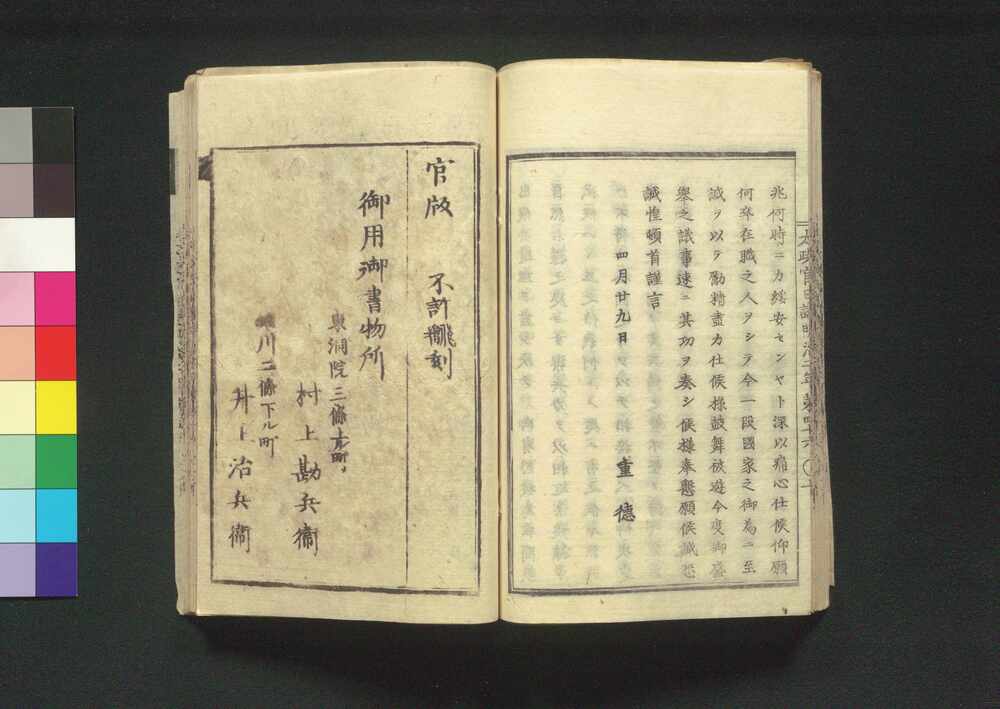 兆何時ニカ綏安センヤト深以痛心仕候仰願
何卒在職之人ヲシテ今一段國家之御為ニ至
誠ヲ以テ勵精盡力仕候様鼓舞被遊今度御盛
擧之議事速ニ其功ヲ奏シ候様奉懇願候誠恐
誠惶頓首謹言
四月廿九日
重德
官版
不許飜刻
御用御書物所
東洞院三條上ル町
村上勘兵衞
川二條下ル町
井上治兵衞
太政官日誌明治二年第四十六